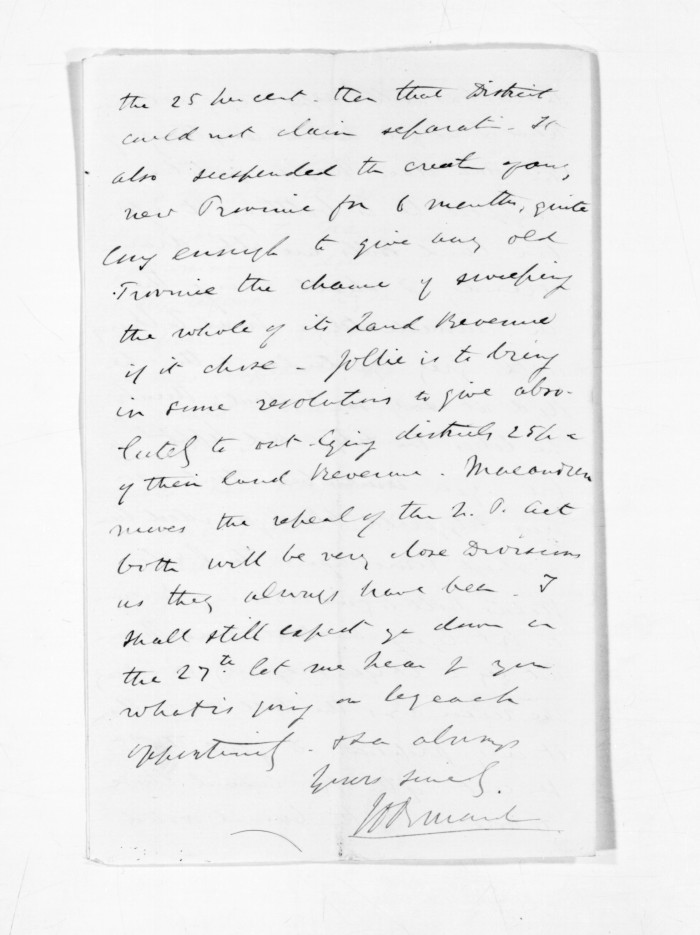 the 25 per cent. then that District
could not claim separati. It
also suspended the creat of any
new Province for 6 months, quite
long enough to give any old
Province the chance of sweeping
the whole of its Land Revenue
if it chose - Jollie is to bring
in some resolutions to give abso-
lutely to out-lying districts 25 p c
of their land Revenue. Macandrew
moves the repeal of the N. P. Act
both will be very close Divisions
as they always have been. I
shall still expect you down on
the 27th let me hear of you
what is going on by each
opportunity. always
Yours sincely.
J D Ormond